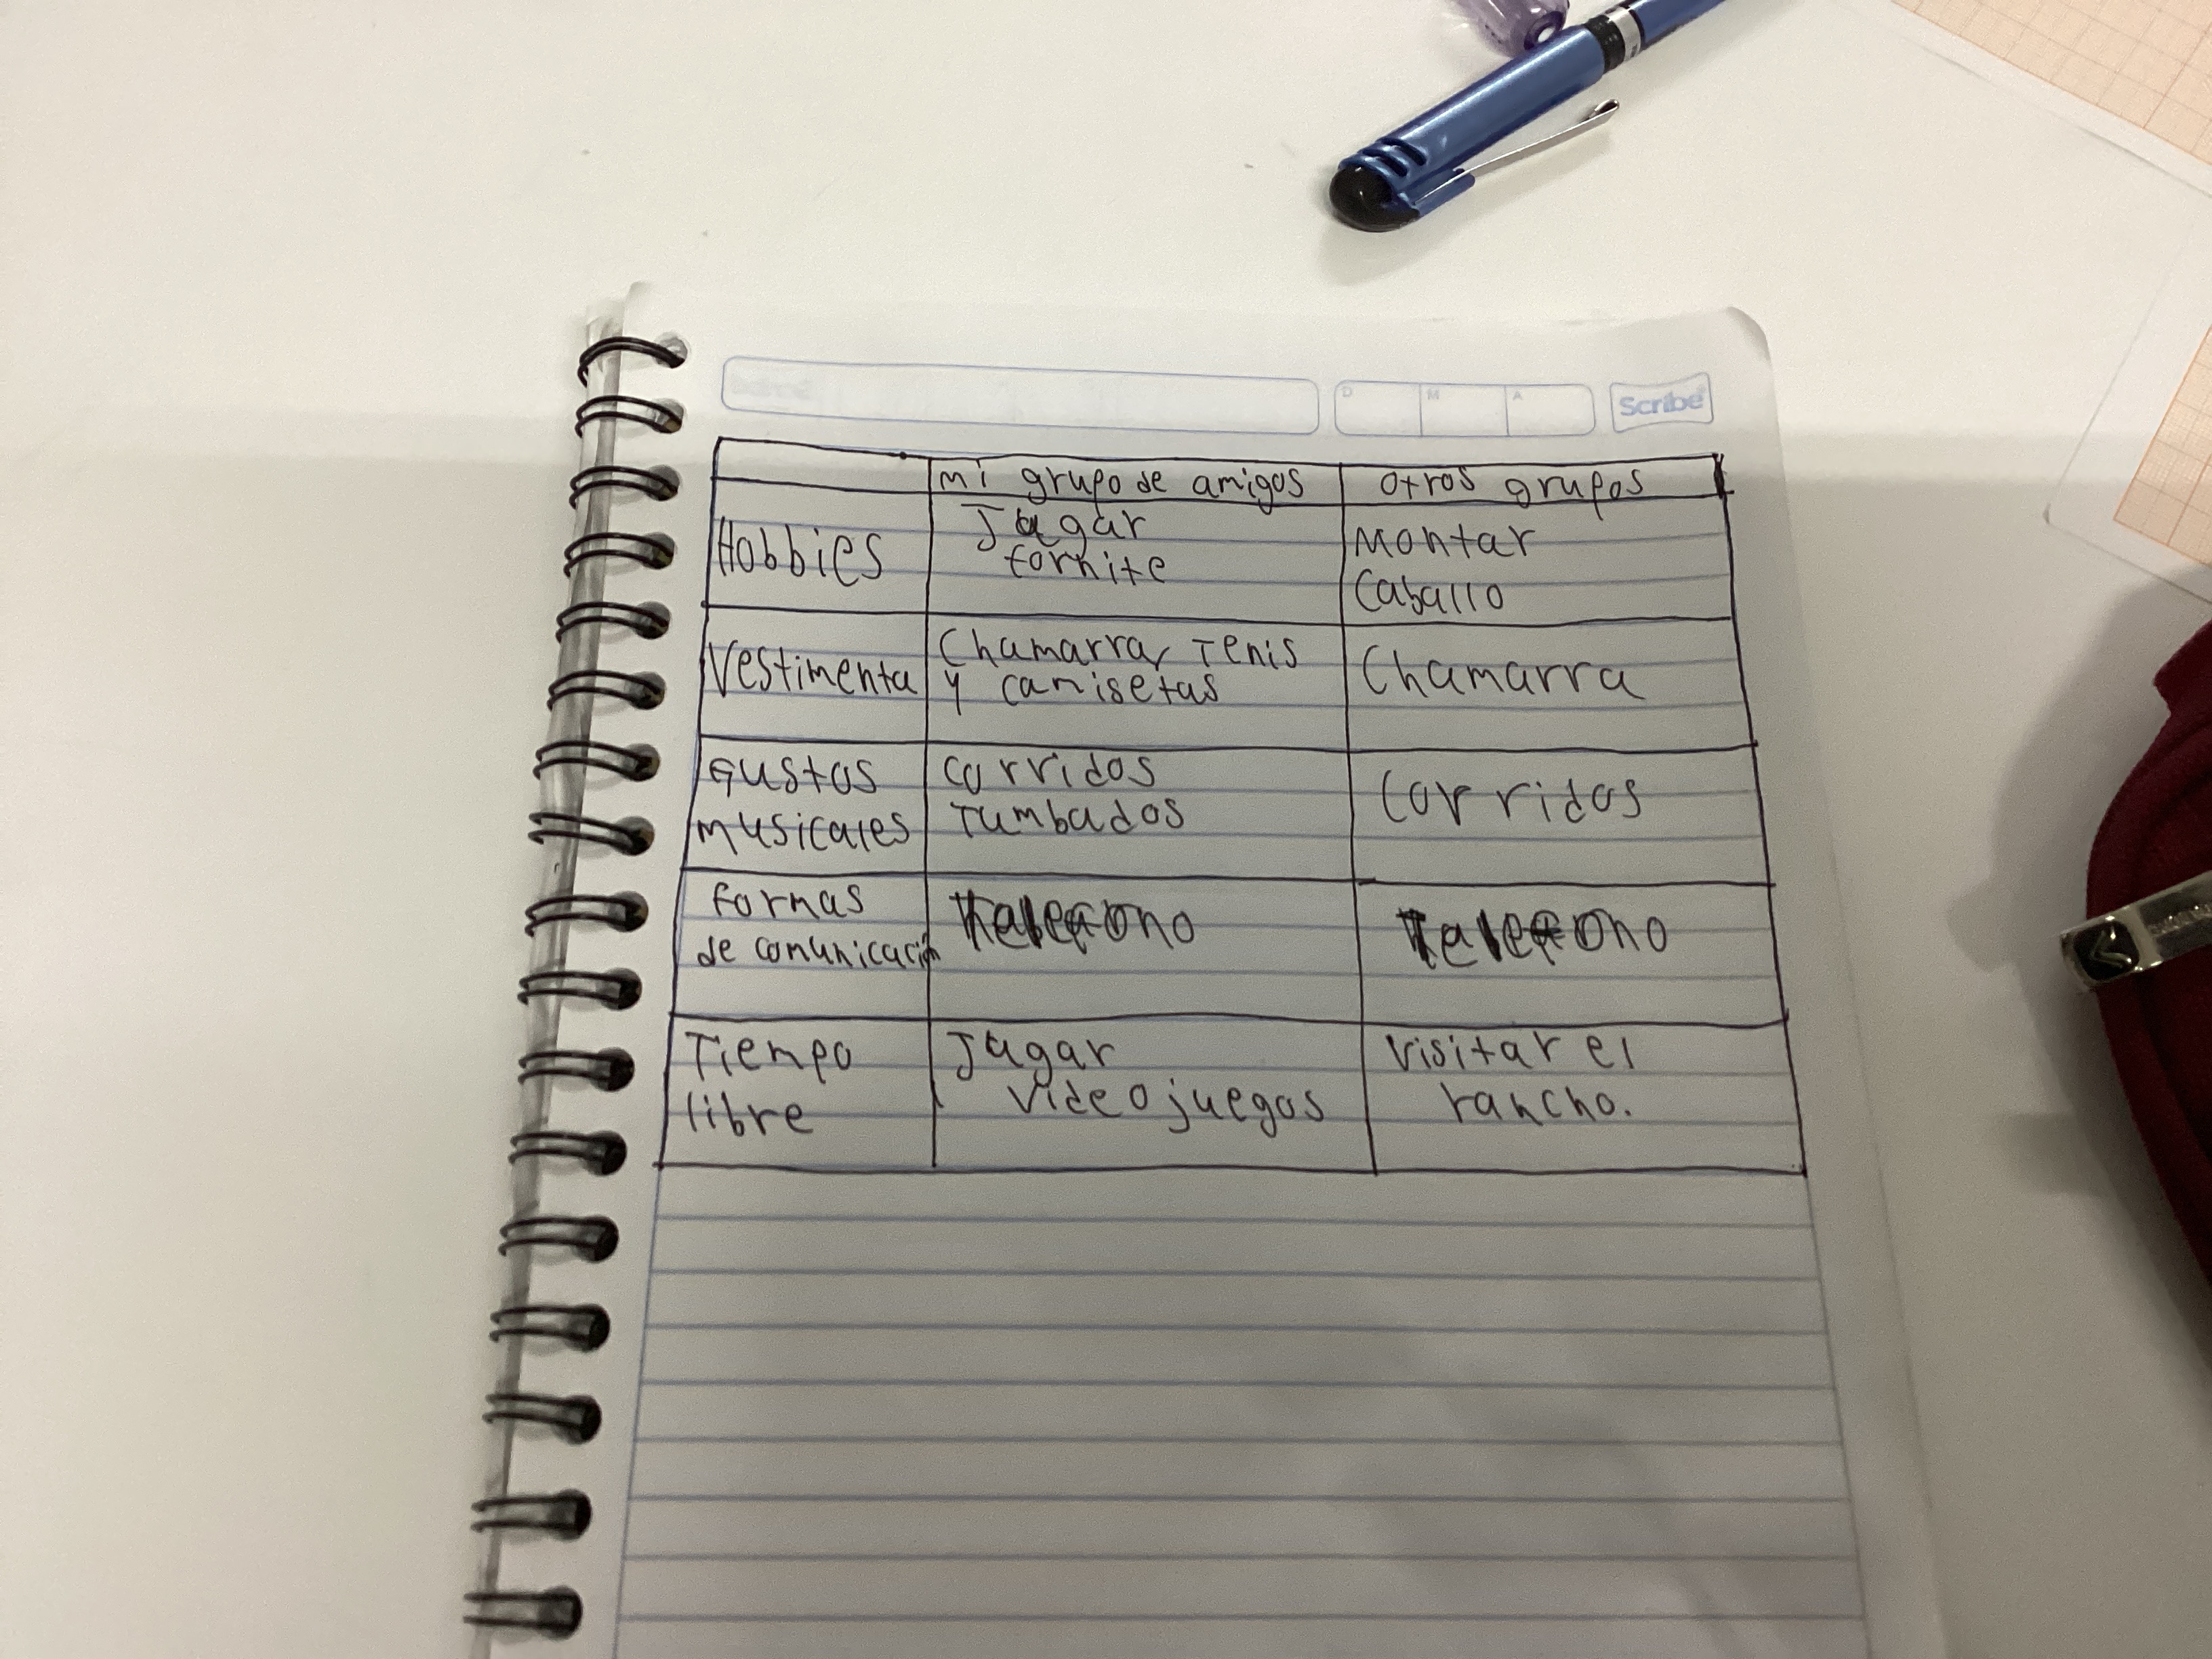 D M A Scribe
mi grupo de amigos otros grupos
Hobbies Jugar fornite Montar Caballo
Vestimenta Chamarra, Tenis y camisetas Chamarra
Gustos musicales corridos Tumbados Corridos
formas de comunicación Telefono Telefono
Tiempo libre Jugar videojuegos Visitar el rancho.